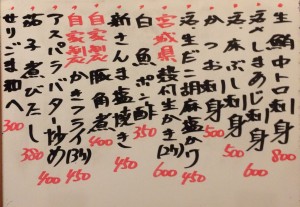 生鮪中トロ刺身 800
活〆さしまあじ刺身 600
活〆かんぱち刺身 500
かつお刺身 500
活生だこ胡麻塩かけ 450
宮城県殻付生かき(2ケ) 600
白魚ポン酢 350
新さんま塩焼き 450
自家製豚角煮 400
自家製かき フライ(3ケ) 450
アスパラバター炒め 400
茄子煮びたし 380
セリごま和へ 300